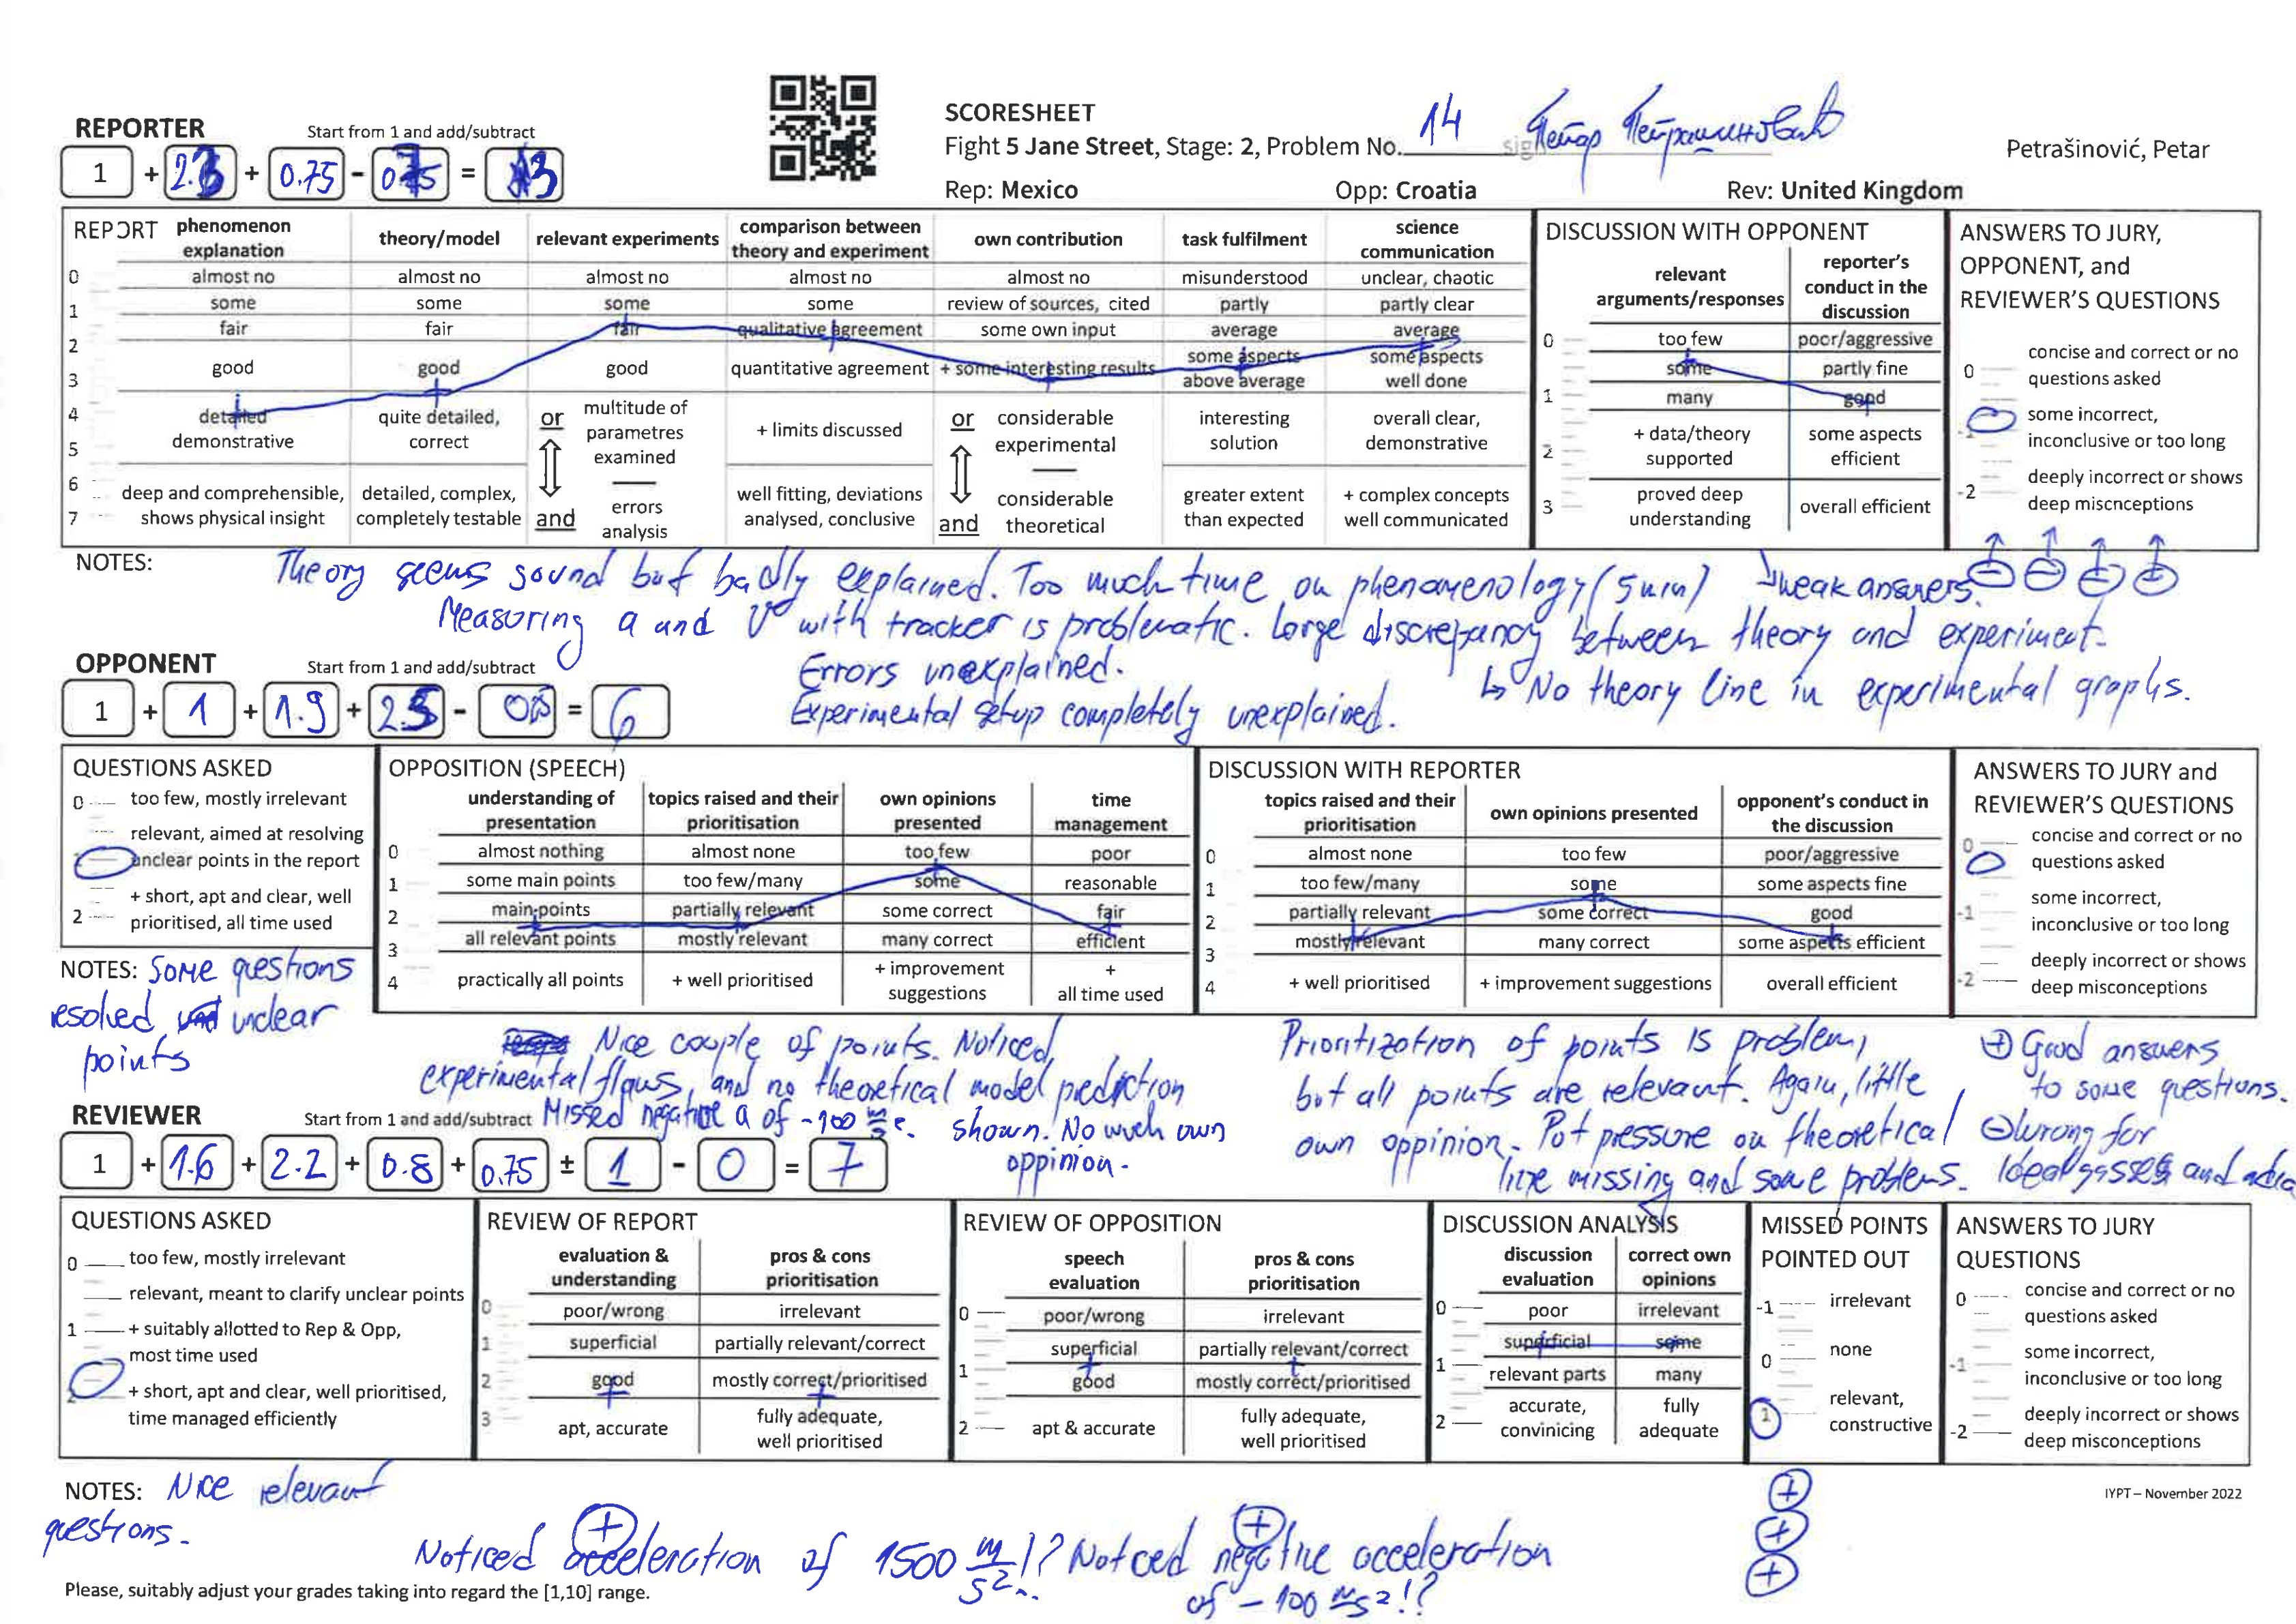 SCORESHEET
Fight 5 Jane Street, Stage: 2, Problem No. 14
Петар Петрашиновић
Petrašinović, Petar
Rep: Mexico Opp: Croatia Rev: United Kingdom
REPORTER Start from 1 and add/subtract
1 + + 0.75 - =
REPORT
phenomenon explanation theory/model relevant experiments comparison between theory and experiment own contribution task fulfilment science communication
0 almost no almost no almost no almost no almost no misunderstood unclear, chaotic
1 some some some some review of sources, cited partly partly clear
fair fair fair qualitative agreement some own input average average
2
good good good quantitative agreement + some interesting results some aspects above average some aspects well done
3
4 detailed demonstrative quite detailed, correct or multitude of parametres examined + limits discussed or considerable experimental interesting solution overall clear, demonstrative
5
6 deep and comprehensible, shows physical insight detailed, complex, completely testable and errors analysis well fitting, deviations analysed, conclusive and considerable theoretical greater extent than expected + complex concepts well communicated
7
DISCUSSION WITH OPPONENT
relevant arguments/responses reporter's conduct in the discussion
0 too few poor/aggressive
some partly fine
1 many good
2 + data/theory supported some aspects efficient
3 proved deep understanding overall efficient
ANSWERS TO JURY, OPPONENT, and REVIEWER'S QUESTIONS
0 concise and correct or no questions asked
-1 some incorrect, inconclusive or too long
-2 deeply incorrect or shows deep miscnceptions
NOTES:
Theory seems sound but badly explained. Too much time on phenomenology (5 min) weak answers.
Measuring a and v with tracker is problematic. Large discrepancy between theory and experiment.
Errors unexplained. ↳ No theory line in experimental graphs.
Experimental setup completely unexplained.
OPPONENT Start from 1 and add/subtract
1 + 1 + 1.9 + 2.5 - = 6
QUESTIONS ASKED
0 too few, mostly irrelevant
relevant, aimed at resolving
unclear points in the report
+ short, apt and clear, well
2 prioritised, all time used
OPPOSITION (SPEECH)
understanding of presentation topics raised and their prioritisation own opinions presented time management
0 almost nothing almost none too few poor
1 some main points too few/many some reasonable
2 main points partially relevant some correct fair
3 all relevant points mostly relevant many correct efficient
4 practically all points + well prioritised + improvement suggestions + all time used
DISCUSSION WITH REPORTER
topics raised and their prioritisation own opinions presented opponent's conduct in the discussion
0 almost none too few poor/aggressive
1 too few/many some some aspects fine
2 partially relevant some correct good
3 mostly relevant many correct some aspects efficient
4 + well prioritised + improvement suggestions overall efficient
ANSWERS TO JURY and REVIEWER'S QUESTIONS
0 concise and correct or no questions asked
-1 some incorrect, inconclusive or too long
-2 deeply incorrect or shows deep misconceptions
NOTES: Some questions
resolved unclear
points
Nice couple of points. Noticed
experimental flaws, and no theoretical model prediction
Missed negative a of -100 m/s². shown. No much own
oppinion.
Prioritization of points is problem,
but all points are relevant. Again, little
own oppinion. Put pressure on theoretical
line missing and some problems.
⊕ Good answers
to some questions.
⊖ wrong for
Ideal gasses and
REVIEWER Start from 1 and add/subtract
1 + 1.6 + 2.2 + 0.8 + 0.75 ± 1 - 0 = 7
QUESTIONS ASKED
0 too few, mostly irrelevant
relevant, meant to clarify unclear points
1 + suitably allotted to Rep & Opp,
most time used
2 + short, apt and clear, well prioritised,
time managed efficiently
REVIEW OF REPORT
evaluation & understanding pros & cons prioritisation
0 poor/wrong irrelevant
1 superficial partially relevant/correct
2 good mostly correct/prioritised
3 apt, accurate fully adequate, well prioritised
REVIEW OF OPPOSITION
speech evaluation pros & cons prioritisation
0 poor/wrong irrelevant
superficial partially relevant/correct
1 good mostly correct/prioritised
2 apt & accurate fully adequate, well prioritised
DISCUSSION ANALYSIS
discussion evaluation correct own opinions
0 poor irrelevant
superficial some
1 relevant parts many
2 accurate, convinicing fully adequate
MISSED POINTS POINTED OUT
-1 irrelevant
0 none
1 relevant, constructive
ANSWERS TO JURY QUESTIONS
0 concise and correct or no questions asked
-1 some incorrect, inconclusive or too long
-2 deeply incorrect or shows deep misconceptions
NOTES: Nice relevant
questions.
Noticed acceleration of 1500 m/s²!? Notced negative acceleration
of -100 m/s²!?
IYPT – November 2022
Please, suitably adjust your grades taking into regard the [1,10] range.